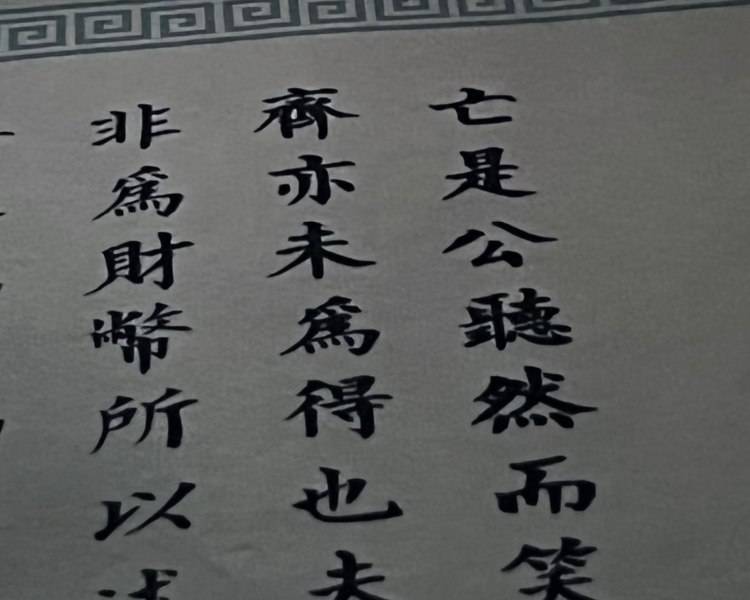 亡是公聽然而笑
齊亦未為得也夫
非為財幣所以述